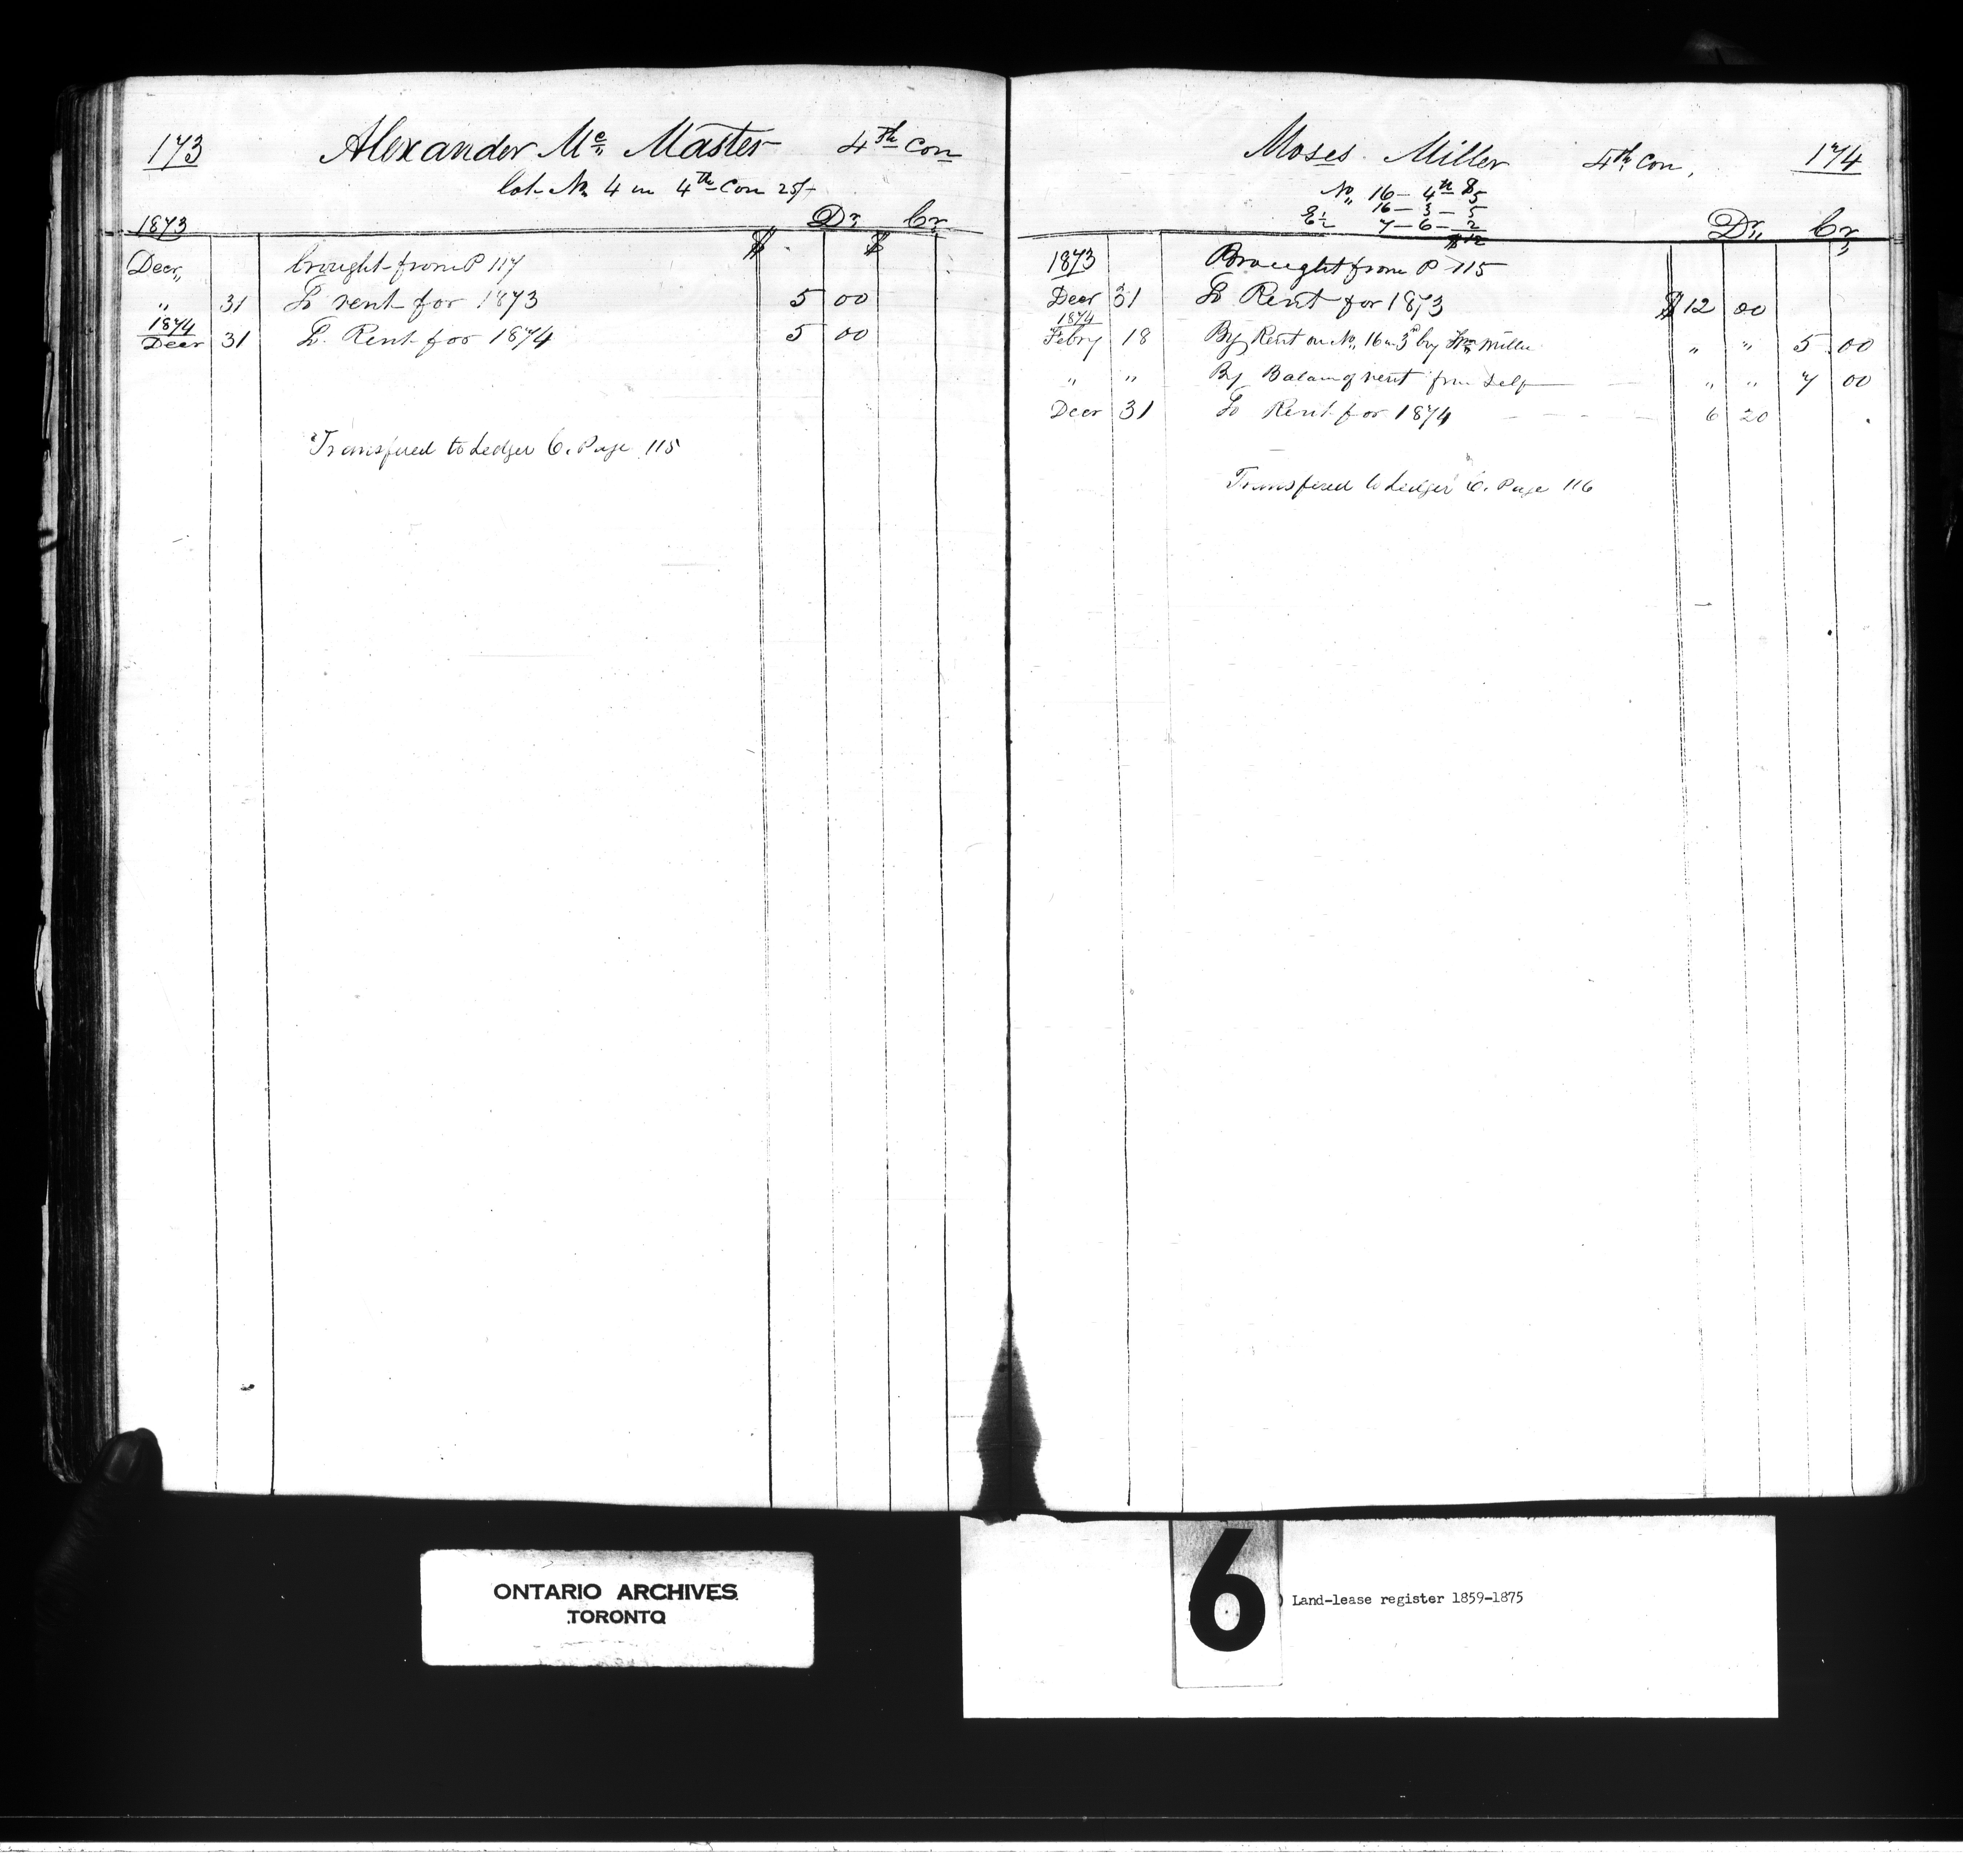 173 Alexander Mc Master 4th Con
lot No 4 in 4th Con 25/-
1873 Dr, Cr,
$ $
Decr,, brought from P 117
" 31 To rent for 1873 5 00
1874
Decr 31 To Rent for 1874 5 00
Transfered to Ledger C. Page 115
Moses Miller 4th Con, 174
No,, 16 — 4th $5
16 — 3 — 5
E½ 7 — 6 — 2
$12
Dr,, Cr,,
1873 Brought from P 115
Decr 31 To Rent for 1873 $12 00
1874
Febry 18 By Rent on No,, 16 in 3rd by Wm Miller " " 5 00
" " By Balance of rent from Self " " 7 00
Decr 31 To Rent for 1874 6 20
Transfered to Ledger C. Page 116
ONTARIO ARCHIVES
TORONTO
6
) Land-lease register 1859-1875